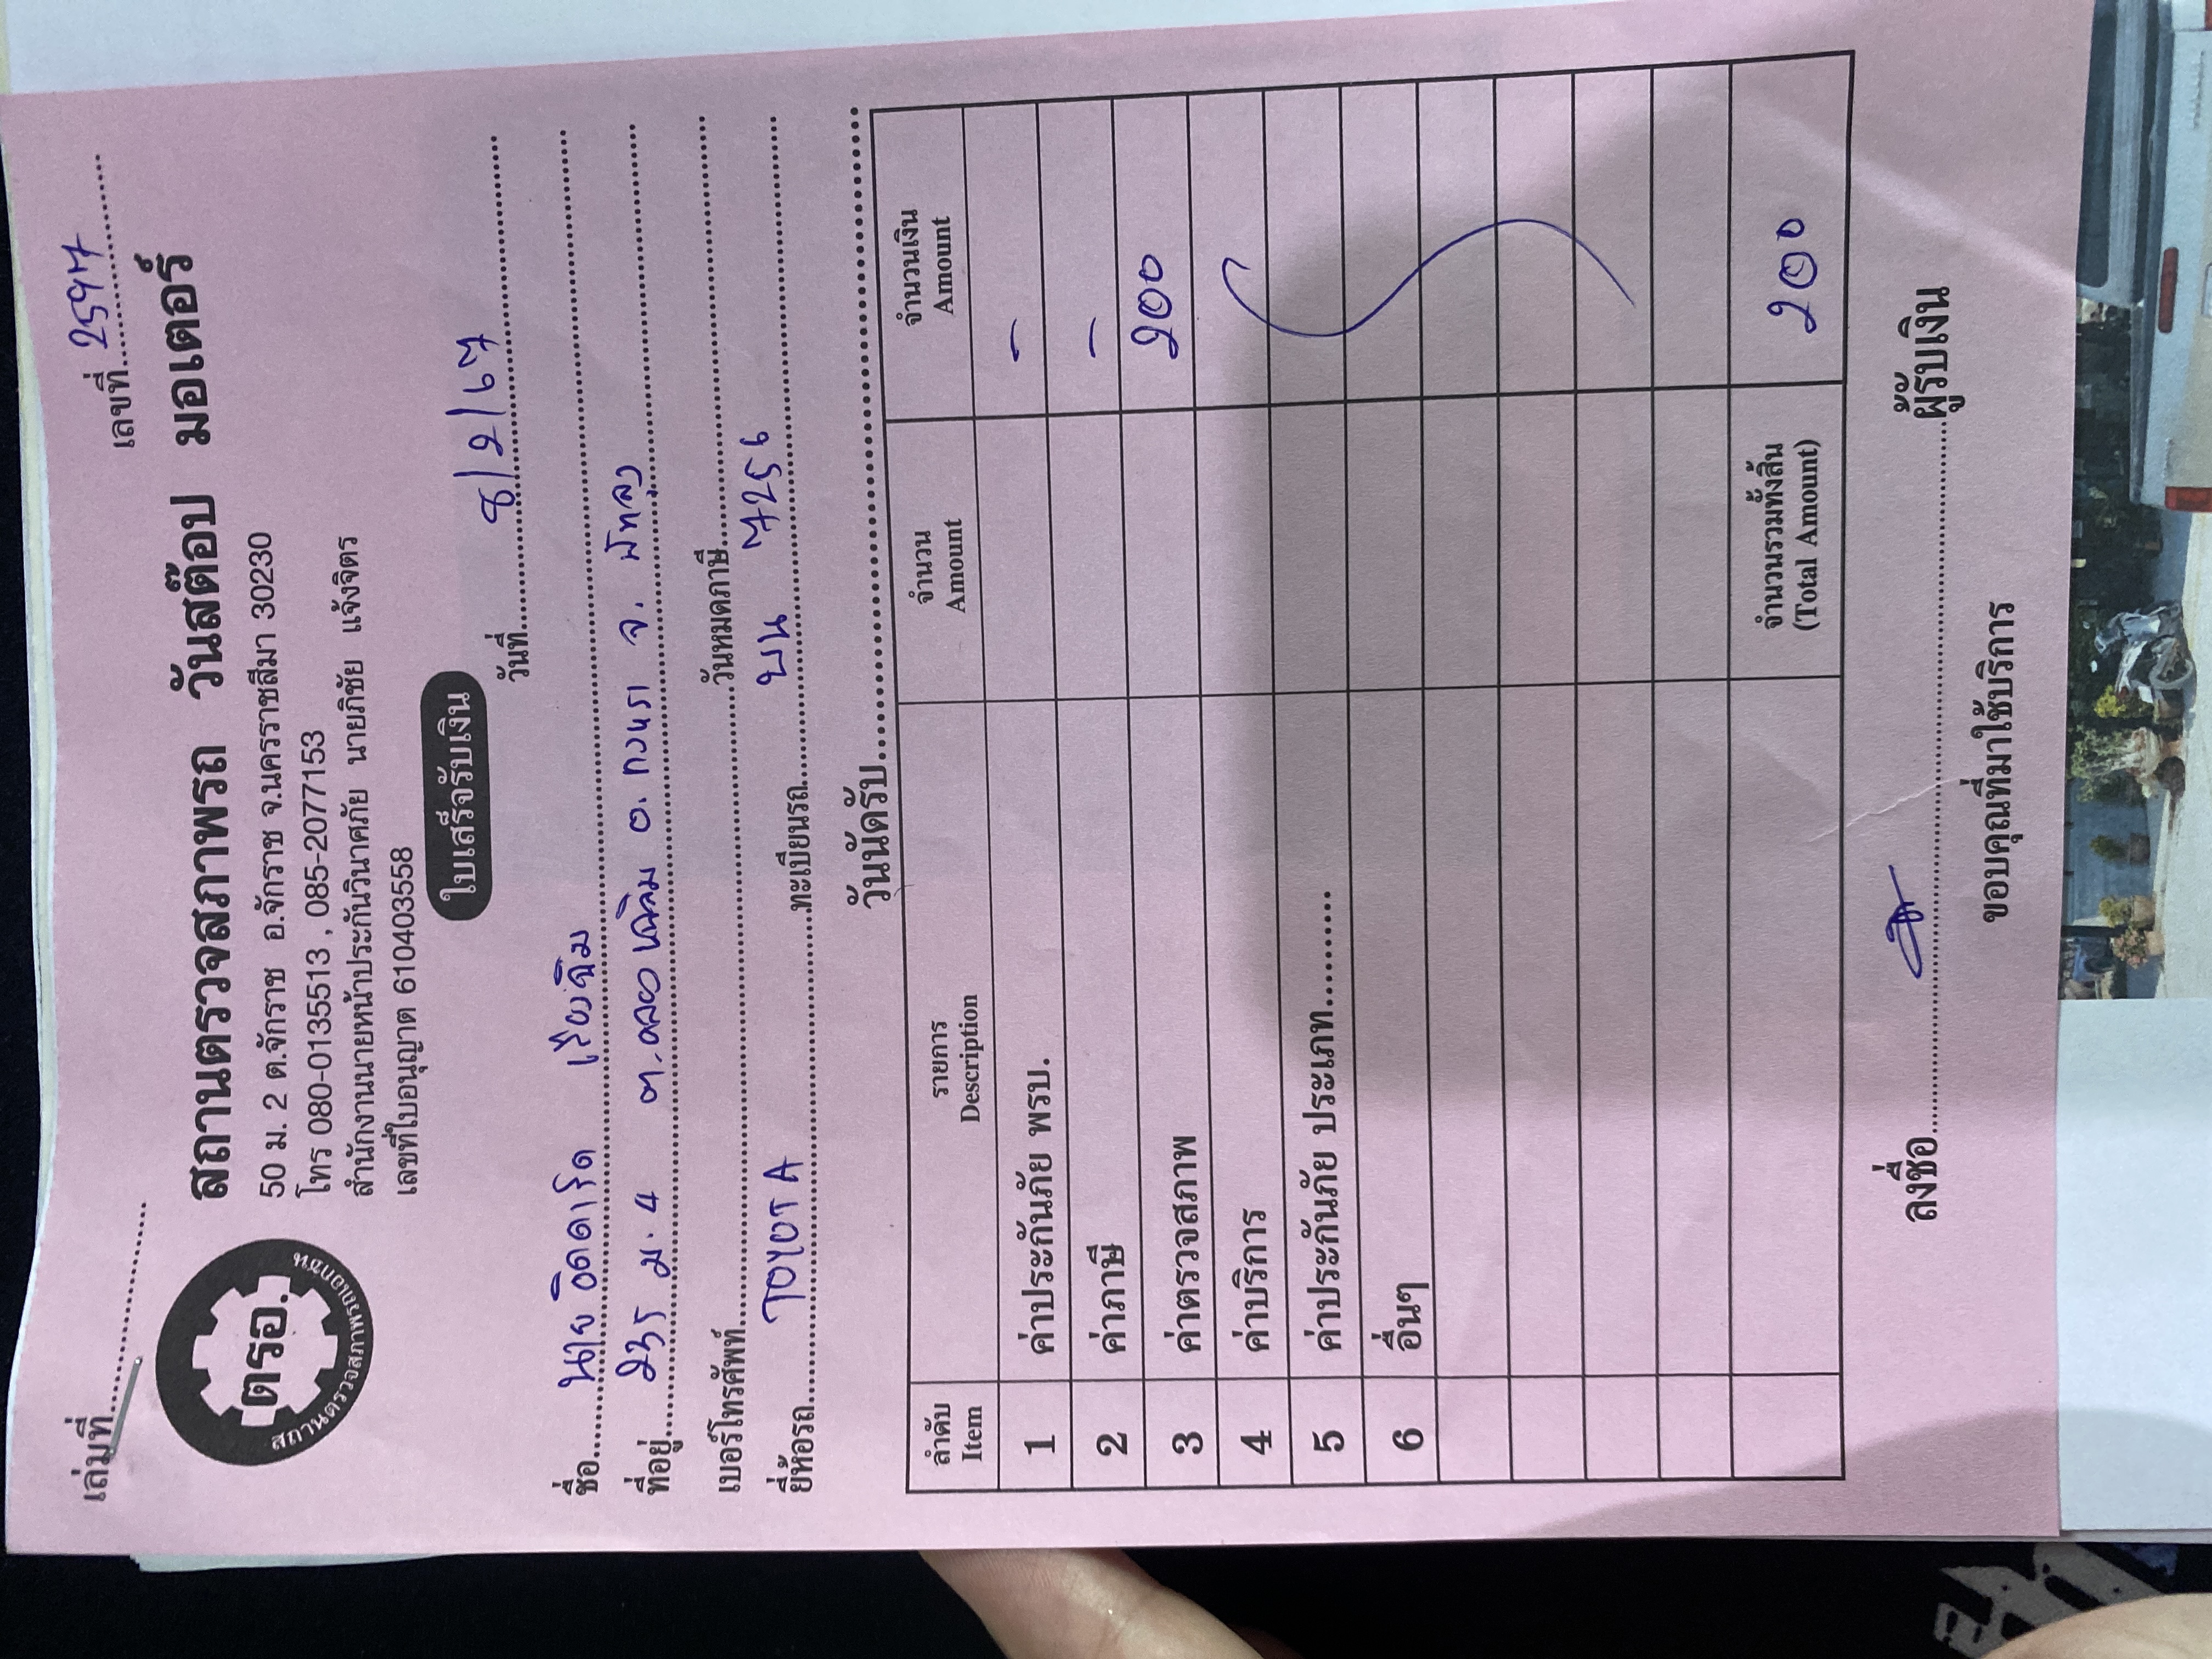 เล่มที่.................... เลขที่ 2597
ตรอ.
สถานตรวจสภาพรถเอกชน
สถานตรวจสภาพรถ วันสต๊อป มอเตอร์
50 ม. 2 ต.จักราช อ.จักราช จ.นครราชสีมา 30230
โทร 080-0135513 , 085-2077153
สำนักงานนายหน้าประกันวินาศภัย นายภิชัย แจ้งจิตร
เลขที่ใบอนุญาต 6104035​58
ใบเสร็จรับเงิน
วันที่ 8/2/67
ชื่อ นาย
ที่อยู่ 235 ม. 4 ต. อ. กงหรา จ. พัทลุง
เบอร์โทรศัพท์....................วันหมดภาษี....................
ยี่ห้อรถ TOYOTA ทะเบียนรถ บน 7256
วันนัดรับ....................
ลำดับ รายการ จำนวน จำนวนเงิน
Item Description Amount Amount
1 ค่าประกันภัย พรบ. -
2 ค่าภาษี -
3 ค่าตรวจสภาพ 200
4 ค่าบริการ
5 ค่าประกันภัย ประเภท..........
6 อื่นๆ
จำนวนรวมทั้งสิ้น 200
(Total Amount)
ลงชื่อ....................ผู้รับเงิน
ขอบคุณที่มาใช้บริการ